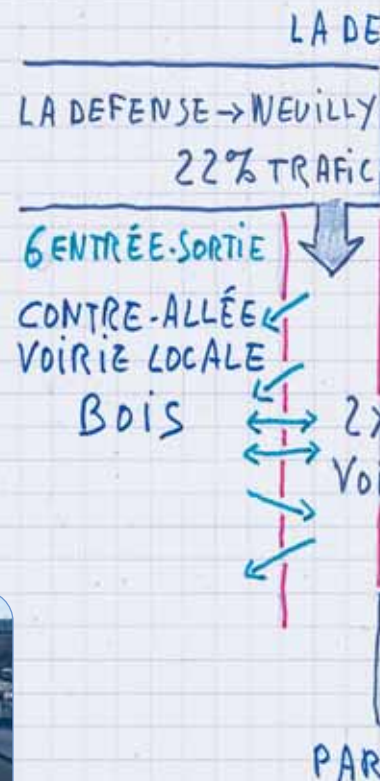 LA DE
LA DEFENSE → NEUILLY
22% TRAFIC
6 ENTRÉE-SORTIE
CONTRE-ALLÉE
VOIRIE LOCALE
BOIS
2X
VOI
PAR